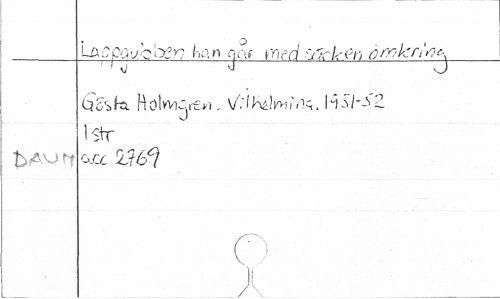 Lappgubben han går med säcken omkring
Gösta Holmgren. Vilhelmina. 1951-52
1 str
DAUM acc 2769